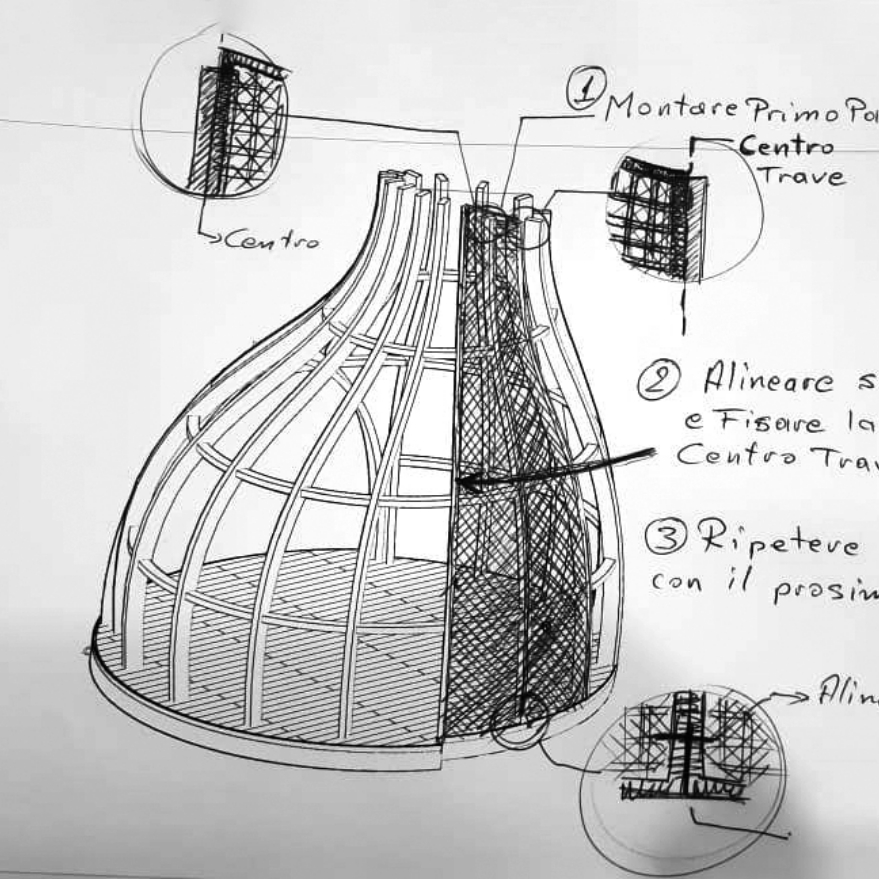 ① Montare Primo Pa
Centro
Trave
Centro
② Alineare s
e Fisare la
Centro Trav
③ Ripetere
con il prosim
Alin